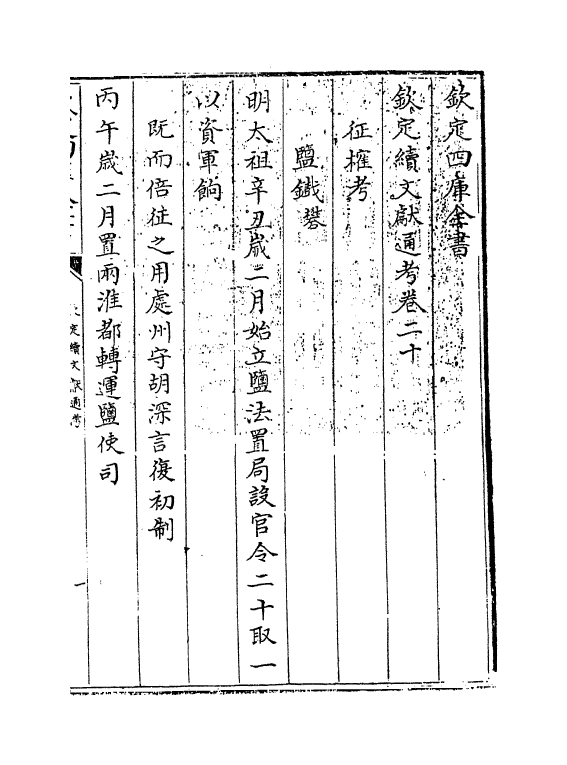 欽定四庫全書
欽定續文獻通考卷二十
征榷考
鹽鐵礬
明太祖辛丑歲二月始立鹽法置局設官令二十取一
以資軍餉
既而倍征之用處州守胡深言復初制
丙午歲二月置兩淮都轉運鹽使司
定續文獻通考
一